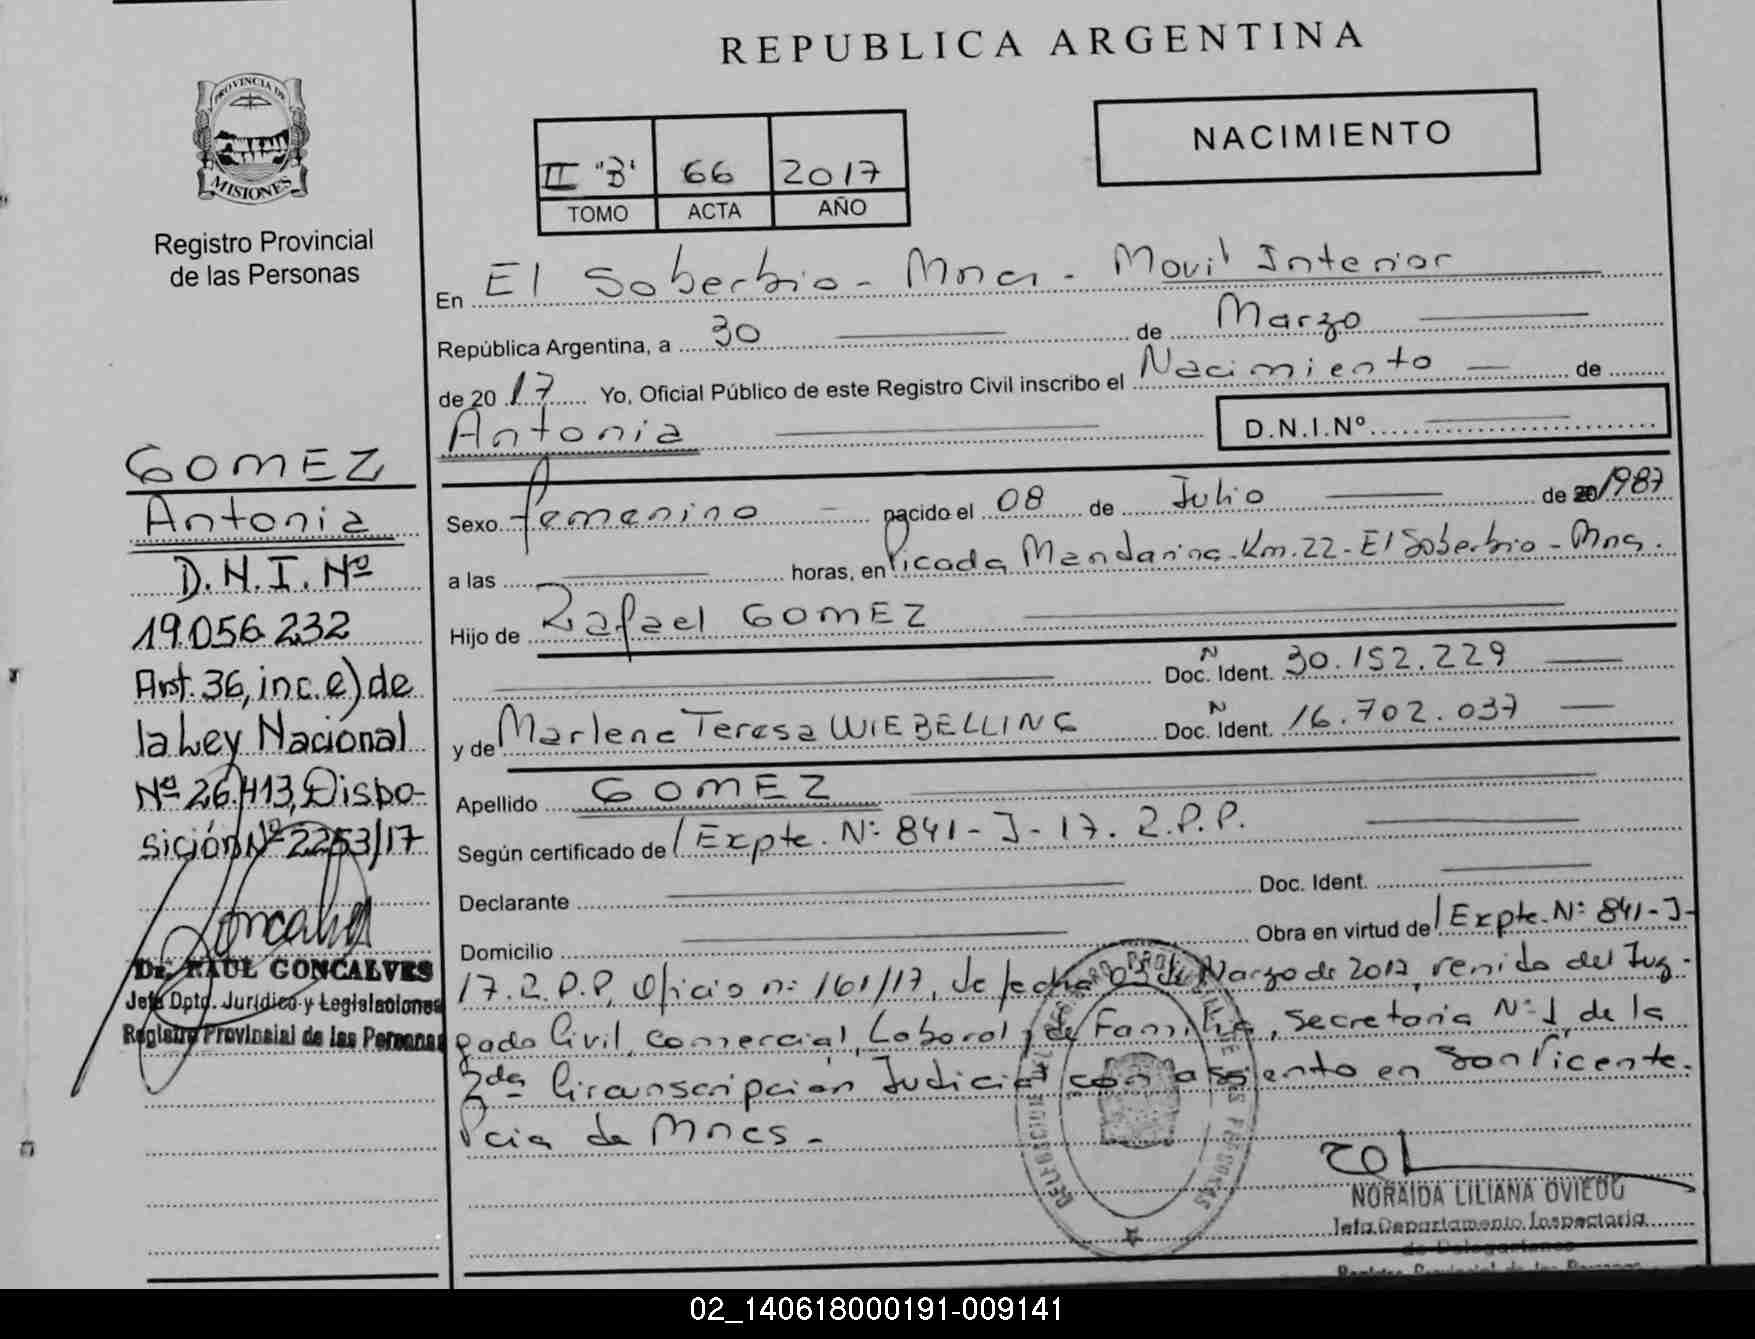 PROVINCIA DE
MISIONES
Registro Provincial
de las Personas
REPUBLICA ARGENTINA
NACIMIENTO
II "B" 66 2017
TOMO ACTA AÑO
En El Soberbio - Mnes - Movil Interior
República Argentina, a 30 de Marzo
de 2017 Yo, Oficial Público de este Registro Civil inscribo el Nacimiento de
Antonia D.N.I.Nº
Sexo femenino nacido el 08 de Julio de 20/1987
a las horas, en Picada Mandarina - Km. 22 - El Soberbio - Mnes.
Hijo de Rafael GOMEZ
Doc. N Ident. 30.152.229
y de Marlene Teresa WIEBELLING Doc. N Ident. 16.702.037
Apellido GOMEZ
Según certificado de / Expte. Nº 841-J-17. 2.P.P.
Declarante Doc. Ident.
Domicilio Obra en virtud de / Expte. Nº 841-J-
17. 2.P.P, Oficio nº 161/17, de fecha de Marzo de 2017, remido del Juz-
gado Civil, Comercial, Laboral y de Familia, Secretaria Nº 1, de la
2da Circunscripción Judicial con asiento en San Vicente.
Pcia de Mnes -
GOMEZ
Antonia
D.N.I. Nº
19.056.232
Art. 36, inc. e) de
la Ley Nacional
Nº 26.413, Dispo-
sición Nº 2253/17
Dr. RAUL GONCALVES
Jefe Dpto. Jurídico y Legislaciones
Registro Provincial de las Personas
NORAIDA LILIANA OVIEDO
Jefa Departamento Inspectoria
de Delegaciones
Registro Provincial de las Personas
02_140618000191-009141